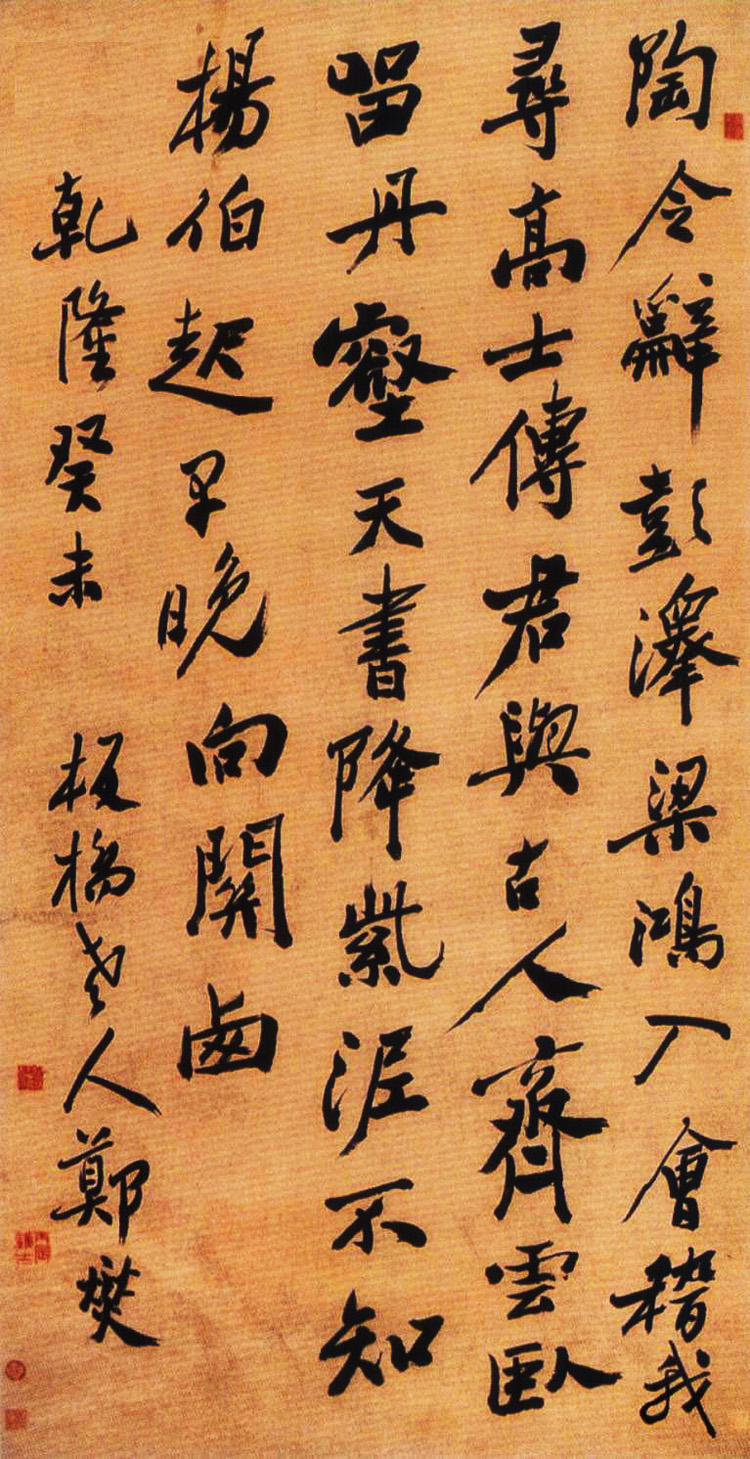 陶令辭彭澤梁鴻入會稽我
尋高士傳君與古人齊雲臥
留丹壑天書降紫泥不知
楊伯起早晚向關西
乾隆癸未 板橋老人鄭燮